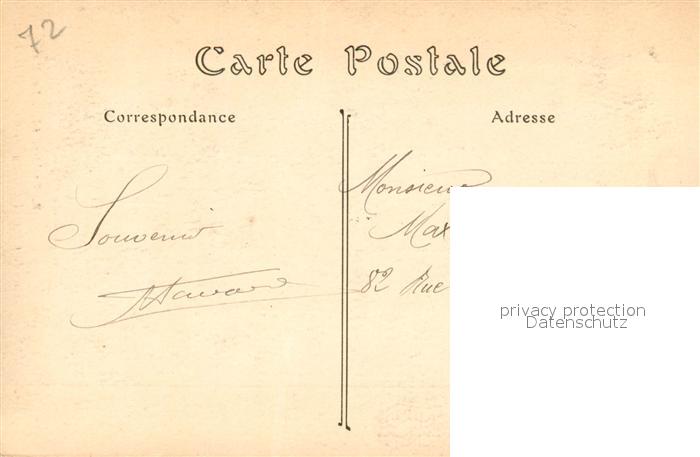 72
Carte Postale
Correspondance
Adresse
Souvenir
Monsieur
Max
82 Rue
privacy protection
Datenschutz